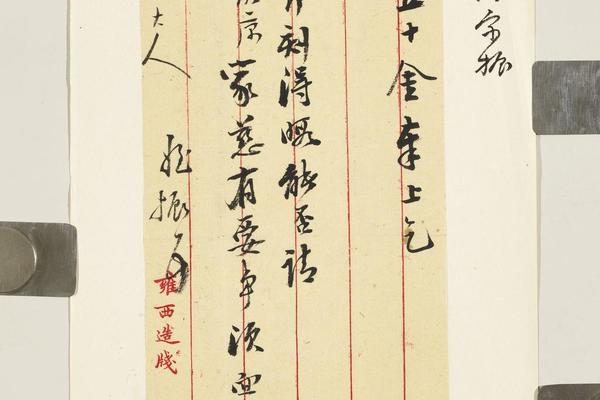 宗振
五十金奉上乞
刻得暇能否請
京家慈有要事須面
大人 姪振
雍西造牋